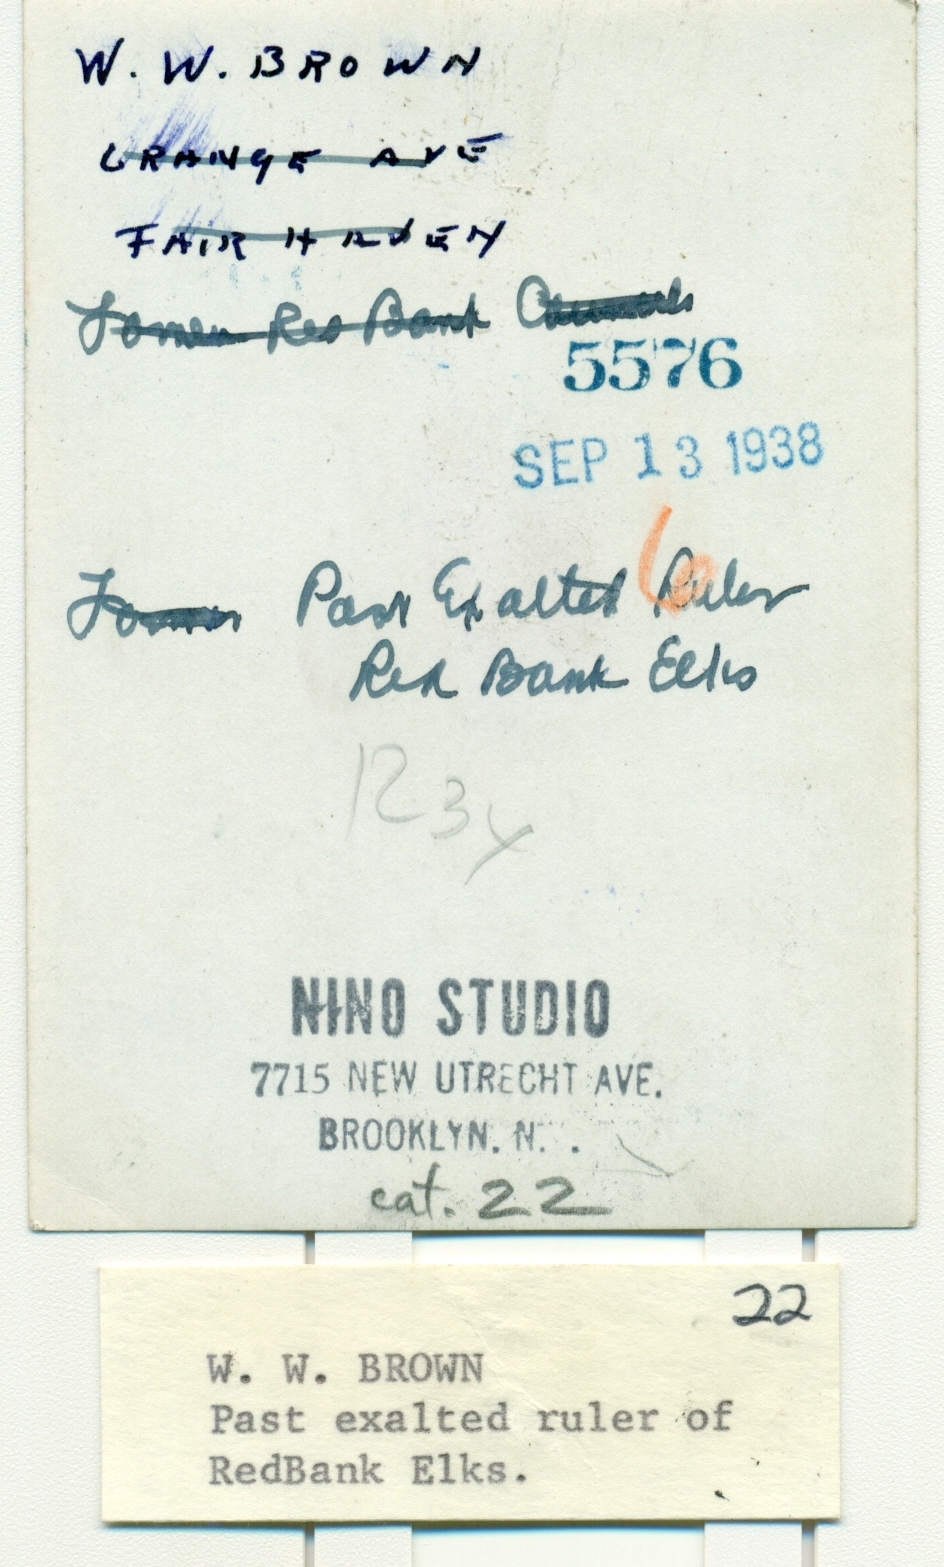 W. W. BROWN
GRANGE AVE
FAIR HAVEN
Former Red Bank
5576
SEP 13 1938
6
Former Past Exalted Ruler
Red Bank Elks
R 3 y
NINO STUDIO
7715 NEW UTRECHT AVE.
BROOKLYN. N. .
cat. 22
22
W. W. BROWN
Past exalted ruler of
RedBank Elks.